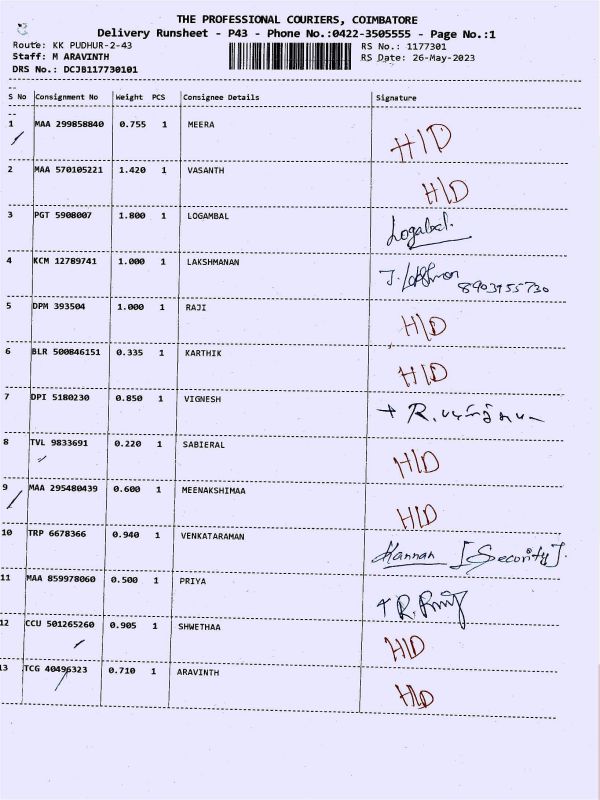 THE PROFESSIONAL COURIERS, COIMBATORE
Delivery Runsheet - P43 - Phone No.:0422-3505555 - Page No.:1
Route: KK PUDHUR-2-43 RS No.: 1177301
Staff: M ARAVINTH RS Date: 26-May-2023
DRS No.: DCJB117730101
S No Consignment No Weight PCS Consignee Details Signature
1 MAA 299858840 0.755 1 MEERA H/D
2 MAA 570105221 1.420 1 VASANTH H/D
3 PGT 5908007 1.800 1 LOGAMBAL
4 KCM 12789741 1.000 1 LAKSHMANAN
5 DPM 393504 1.000 1 RAJI H/D
6 BLR 500846151 0.335 1 KARTHIK H/D
7 DPI 5180230 0.850 1 VIGNESH
8 TVL 9833691 0.220 1 SABIERAL H/D
9 MAA 295480439 0.600 1 MEENAKSHIMAA H/D
10 TRP 6678366 0.940 1 VENKATARAMAN Hannan [Security].
11 MAA 859978060 0.500 1 PRIYA
12 CCU 501265260 0.905 1 SHWETHAA H/D
13 TCG 40496323 0.710 1 ARAVINTH H/D